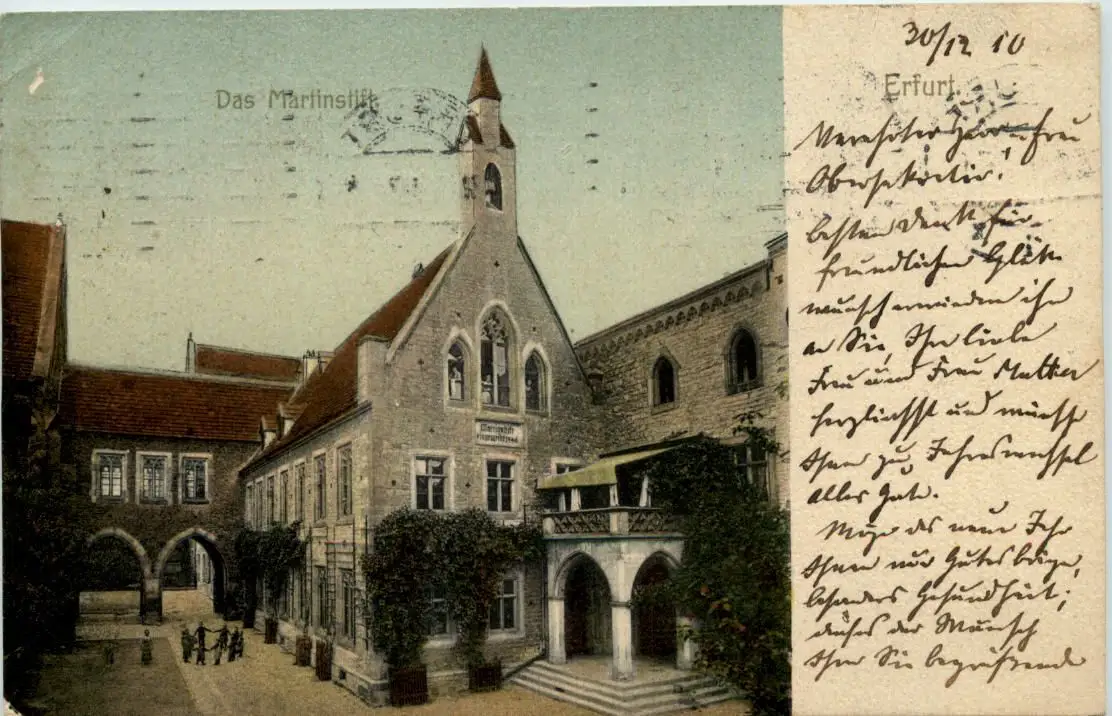 Das Martinstift.
Erfurt.
30/12 10
Verehrter Herr u Frau
Obersekretär!
besten Dank für
freundlichen Glück
wunsch erwiedern ih
an Sie, Ihre liebe
Frau und Frau Mutter
herzlichst und wünsche
Ihnen zum Jahreswechsel
alles Gute.
Möge das neue Jahr
Ihnen nur Gutes bringen,
besonders Gesundheit;
dieses der Wunsch
Ihrer Sie begrüßende